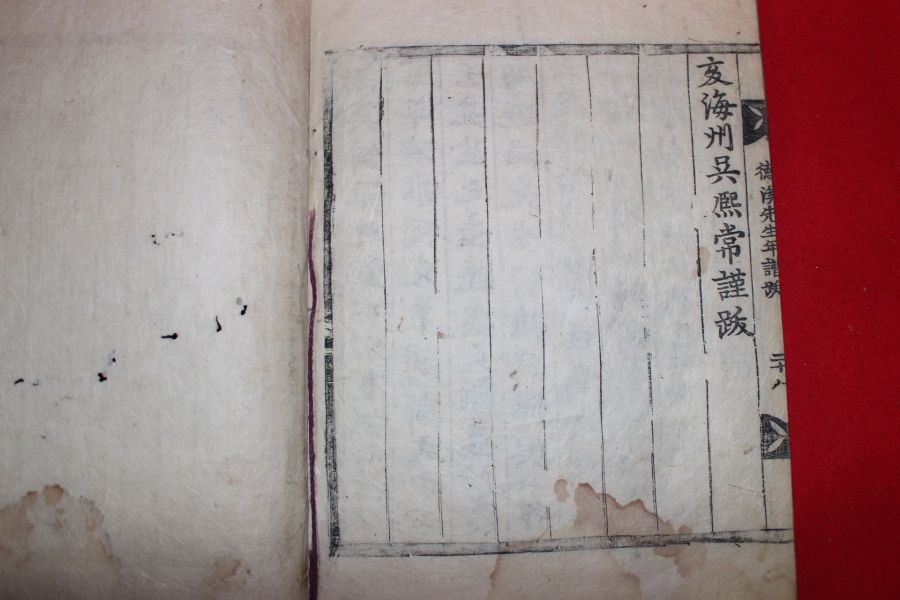 亥海州吳熙常謹跋
德溪先生年譜跋
二十八